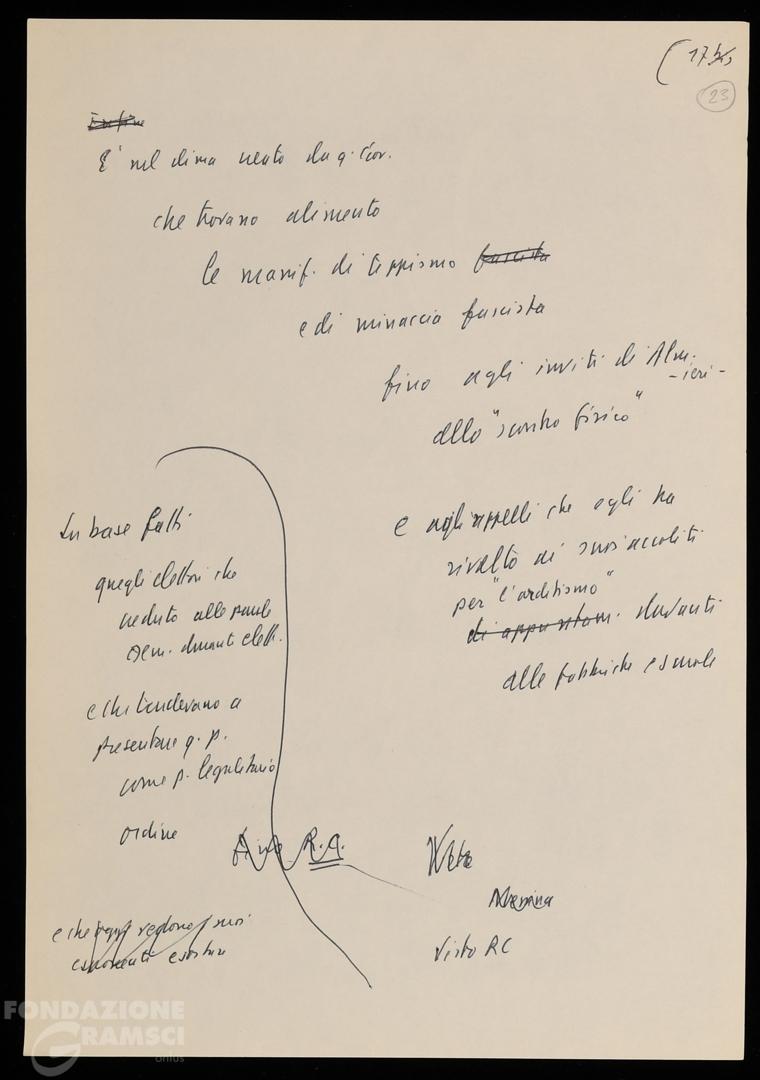 (17bis
23
Infine
E' nel clima creato da q. Gov.
che trovano alimento
le manif. di teppismo fascista
e di minaccia fascista
fino agli inviti di Alm.
- ieri -
allo "scontro fisico"
e agli appelli che egli ha
rivolto ai suoi accoliti
per "l'arditismo"
di appuntam. davanti
alle fabbriche e scuole
In base fatti
quegli elettori che
creduto alle parole
dem. durante elett.
e che tendevano a
presentare q. p.
come p. legalitario
ordine
e che oggi vedono i suoi
esponenti esortare
fino R.C.
Messina
Visto RC
FONDAZIONE
GRAMSCI
onlus